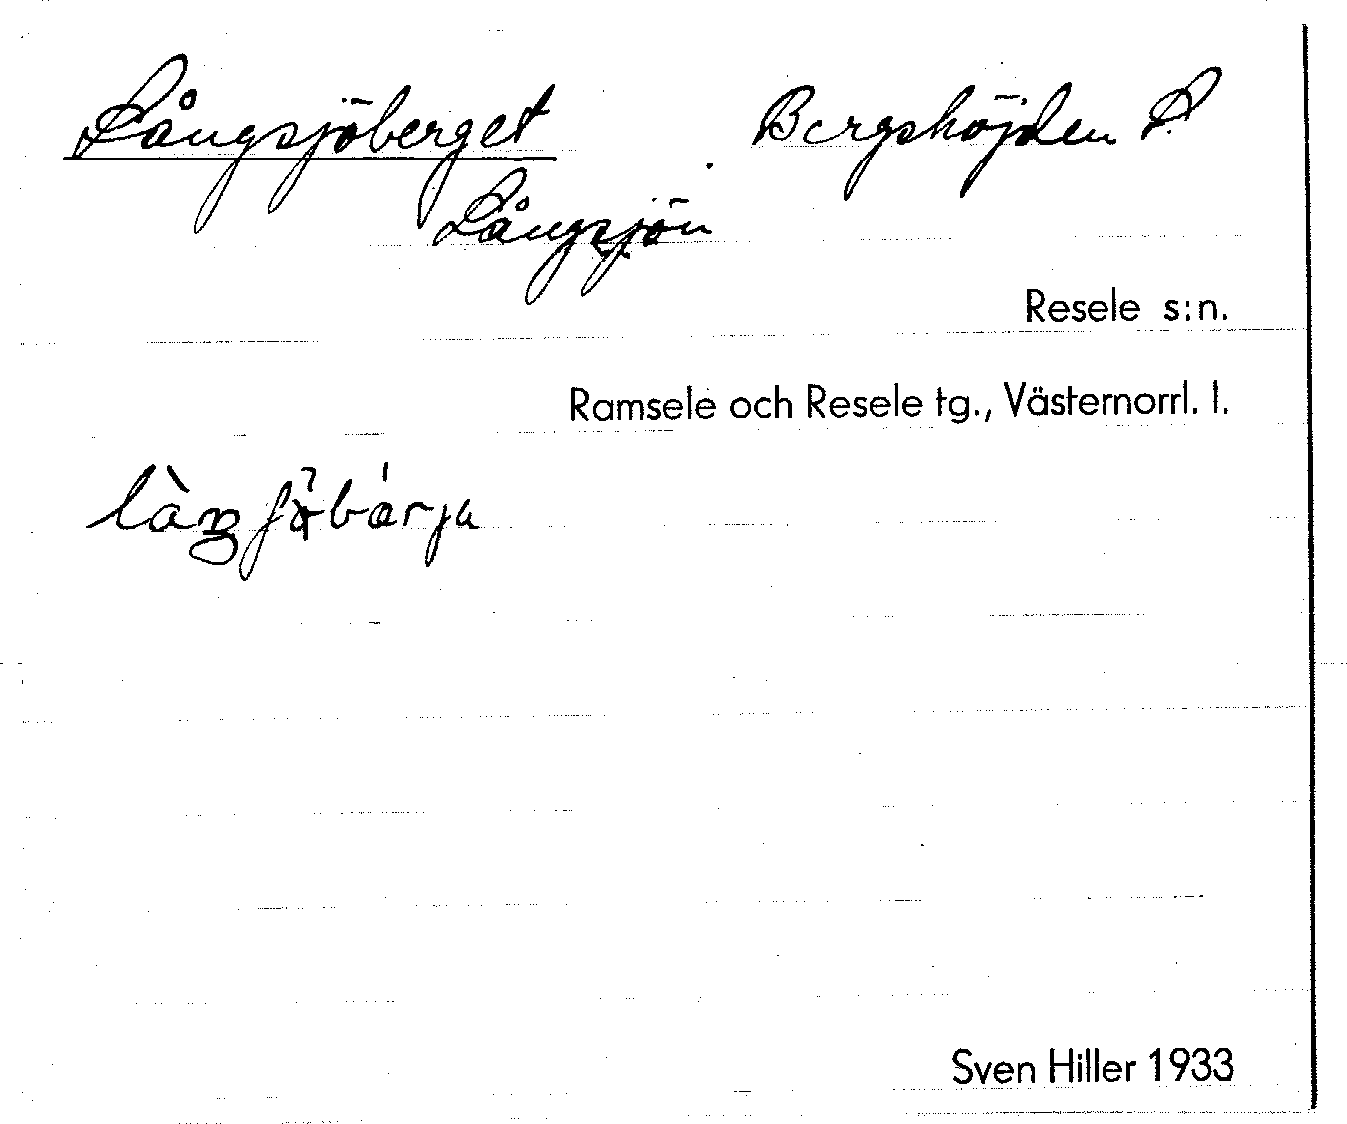 Långsjöberget Bergshöjden S.
Långsjön
Resele s:n.
Ramsele och Resele tg., Västernorrl. l.
Sven Hiller 1933